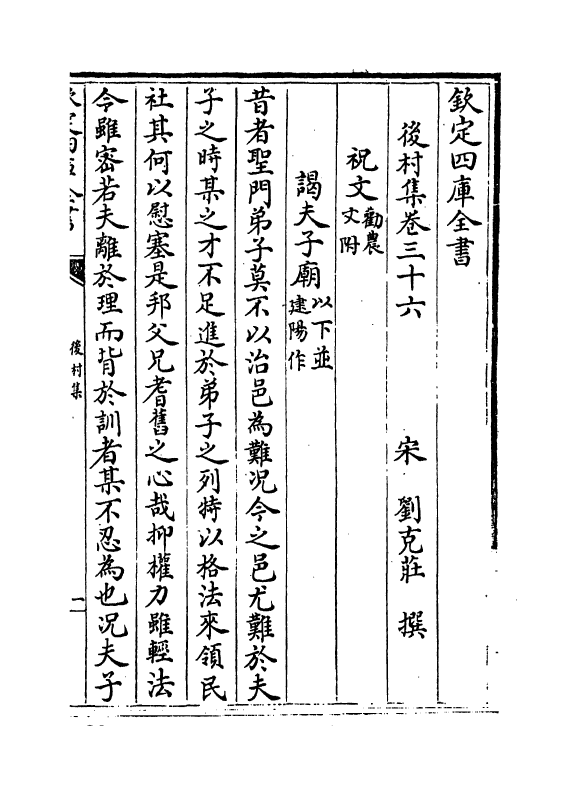 欽定四庫全書
後村集卷三十六
宋 劉克莊 撰
祝文勸農文附
謁夫子廟以下並建陽作
昔者聖門弟子莫不以治邑為難況今之邑尤難於夫
子之時某之才不足進於弟子之列特以格法來領民
社其何以慰塞是邦父兄耆舊之心哉抑權力雖輕法
今雖密若夫離於理而背於訓者某不忍為也況夫子
後村集
一